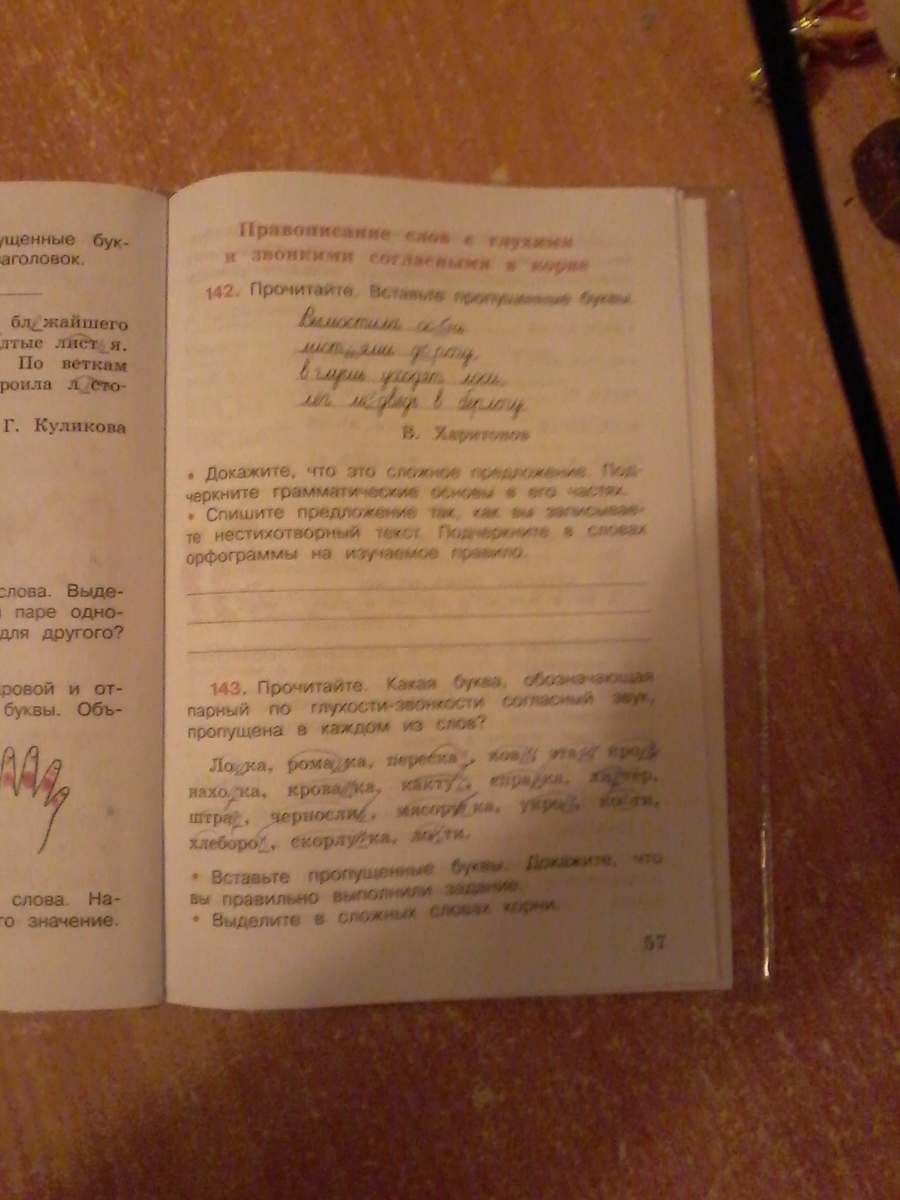 ущенные бук-
аголовок.
бл жайшего
лтые лист я.
По веткам
роила л сто-
Г. Куликова
слова. Выде-
паре одно-
для другого?
ровой и от-
буквы. Объ-
слова. На-
го значение.
Правописание слов с глухими
и звонкими согласными в корне
142. Прочитайте. Вставьте пропущенные буквы.
Вымостила осень
листьями дорогу,
в глушь уходят лоси,
лёг медведь в берлогу.
В. Харитонов
• Докажите, что это сложное предложение. Под-
черкните грамматические основы в его частях.
• Спишите предложение так, как вы записывае-
те нестихотворный текст. Подчеркните в словах
орфограммы на изучаемое правило.
143. Прочитайте. Какая буква, обозначающая
парный по глухости-звонкости согласный звук,
пропущена в каждом из слов?
Ло ка, рома ка, переска , ков , эта , кро ,
нахо ка, крова ка, какту , спра ка,
штра , черносли , мясору ка, укро , ко ти,
хлеборо , скорлу ка, ло ти.
• Вставьте пропущенные буквы. Докажите, что
вы правильно выполнили задание.
• Выделите в сложных словах корни.
57